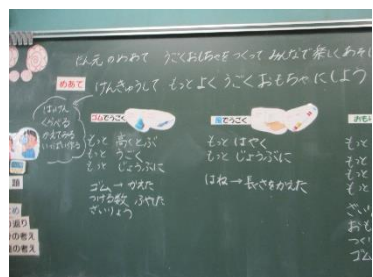 たん元のめあて うごくおもちゃをつくって みんなで楽しくあそ
めあて
けんきゅうして もっとよく うごくおもちゃにしよう
くらべる
かえてみる
ゴムでうごく
もっと 高くとぶ
もっと うごく
もっと じょうぶに
ゴム→かえた
つける数 ふやした
ざいりょう
風でうごく
もっと はやく
もっと じょうぶに
はね→長さをかえた
おもり
もっと
もっと
もっと
もっと
ざい
おも
つく
ゴム
題
め
り返り
の考え
の考え